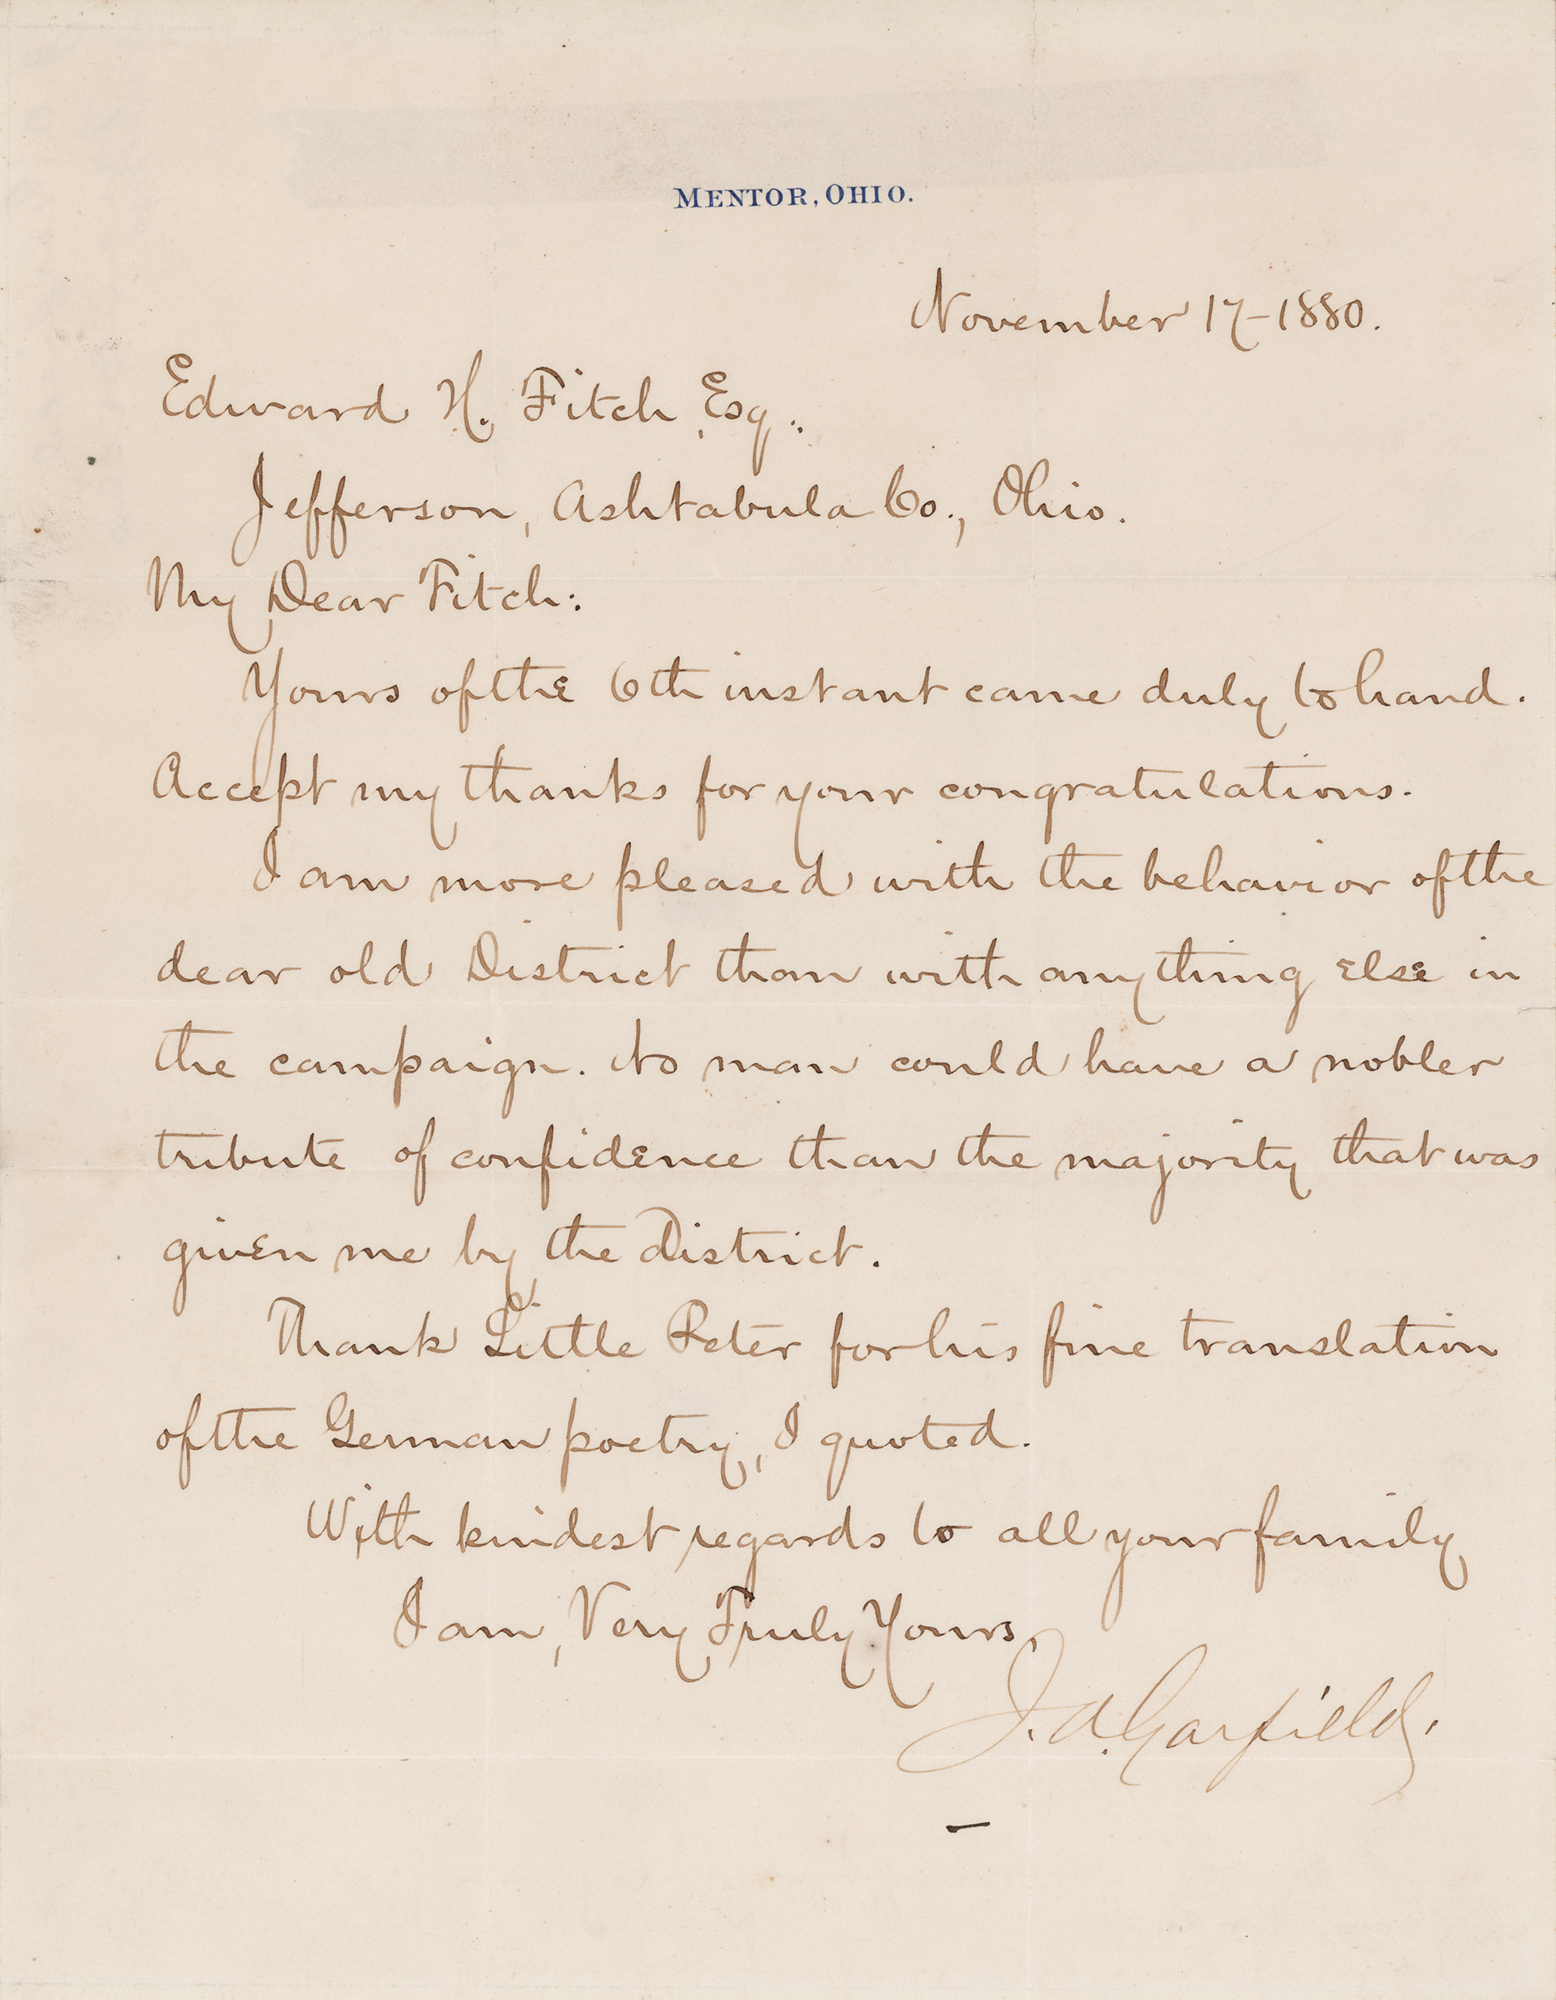 MENTOR, OHIO.
November 17-1880.
Edward H. Fitch, Esq.,
Jefferson, Ashtabula Co., Ohio.
My Dear Fitch:
Yours of the 6th instant came duly to hand.
Accept my thanks for your congratulations.
I am more pleased with the behavior of the
dear old District than with anything else in
the campaign. No man could have a nobler
tribute of confidence than the majority that was
given me by the District.
Thank Little Peter for his fine translation
of the German poetry, I quoted.
With kindest regards to all your family
I am, Very Truly Yours,
J. A. Garfield.